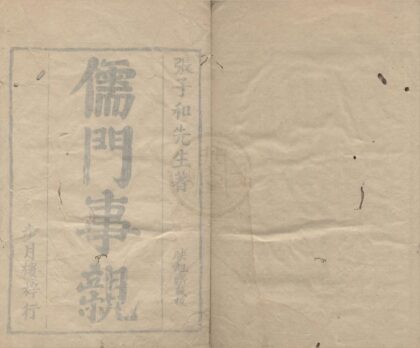 張子和先生著
儒門事親
步月樓梓行